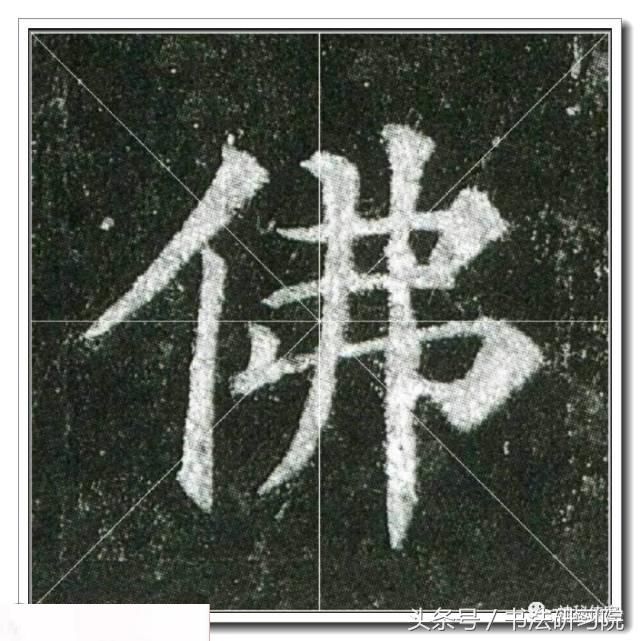 佛
头条号 / 书法研习院